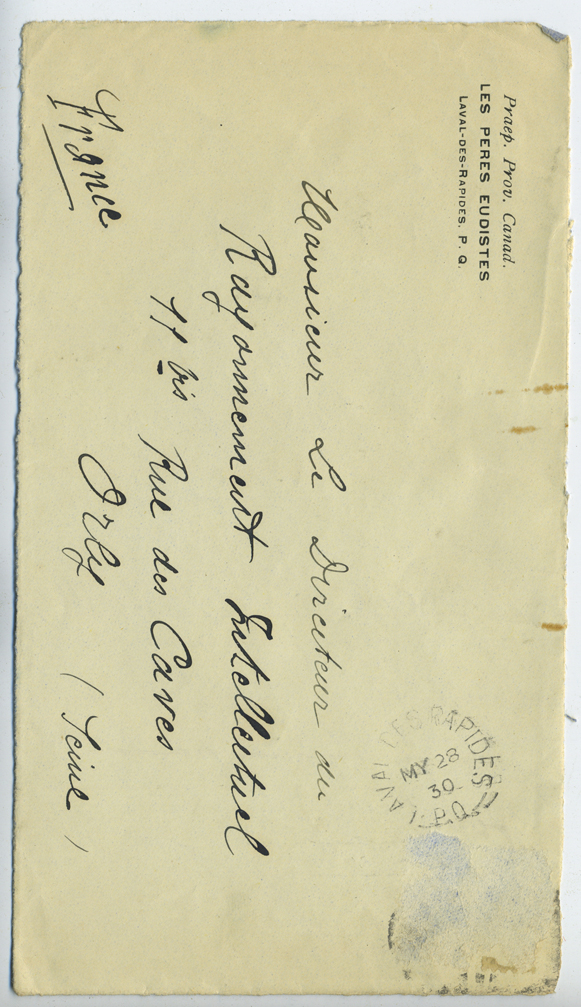 Praep. Prov. Canad.
LES PERES EUDISTES
LAVAL-DES-RAPIDES. P. Q.
Monsieur Le Directeur du
Rayonnement Intellectuel
11 bis Rue des Caves
Orly (Seine)
France
LAVAL DES RAPIDES
MY 28
30
P.Q.